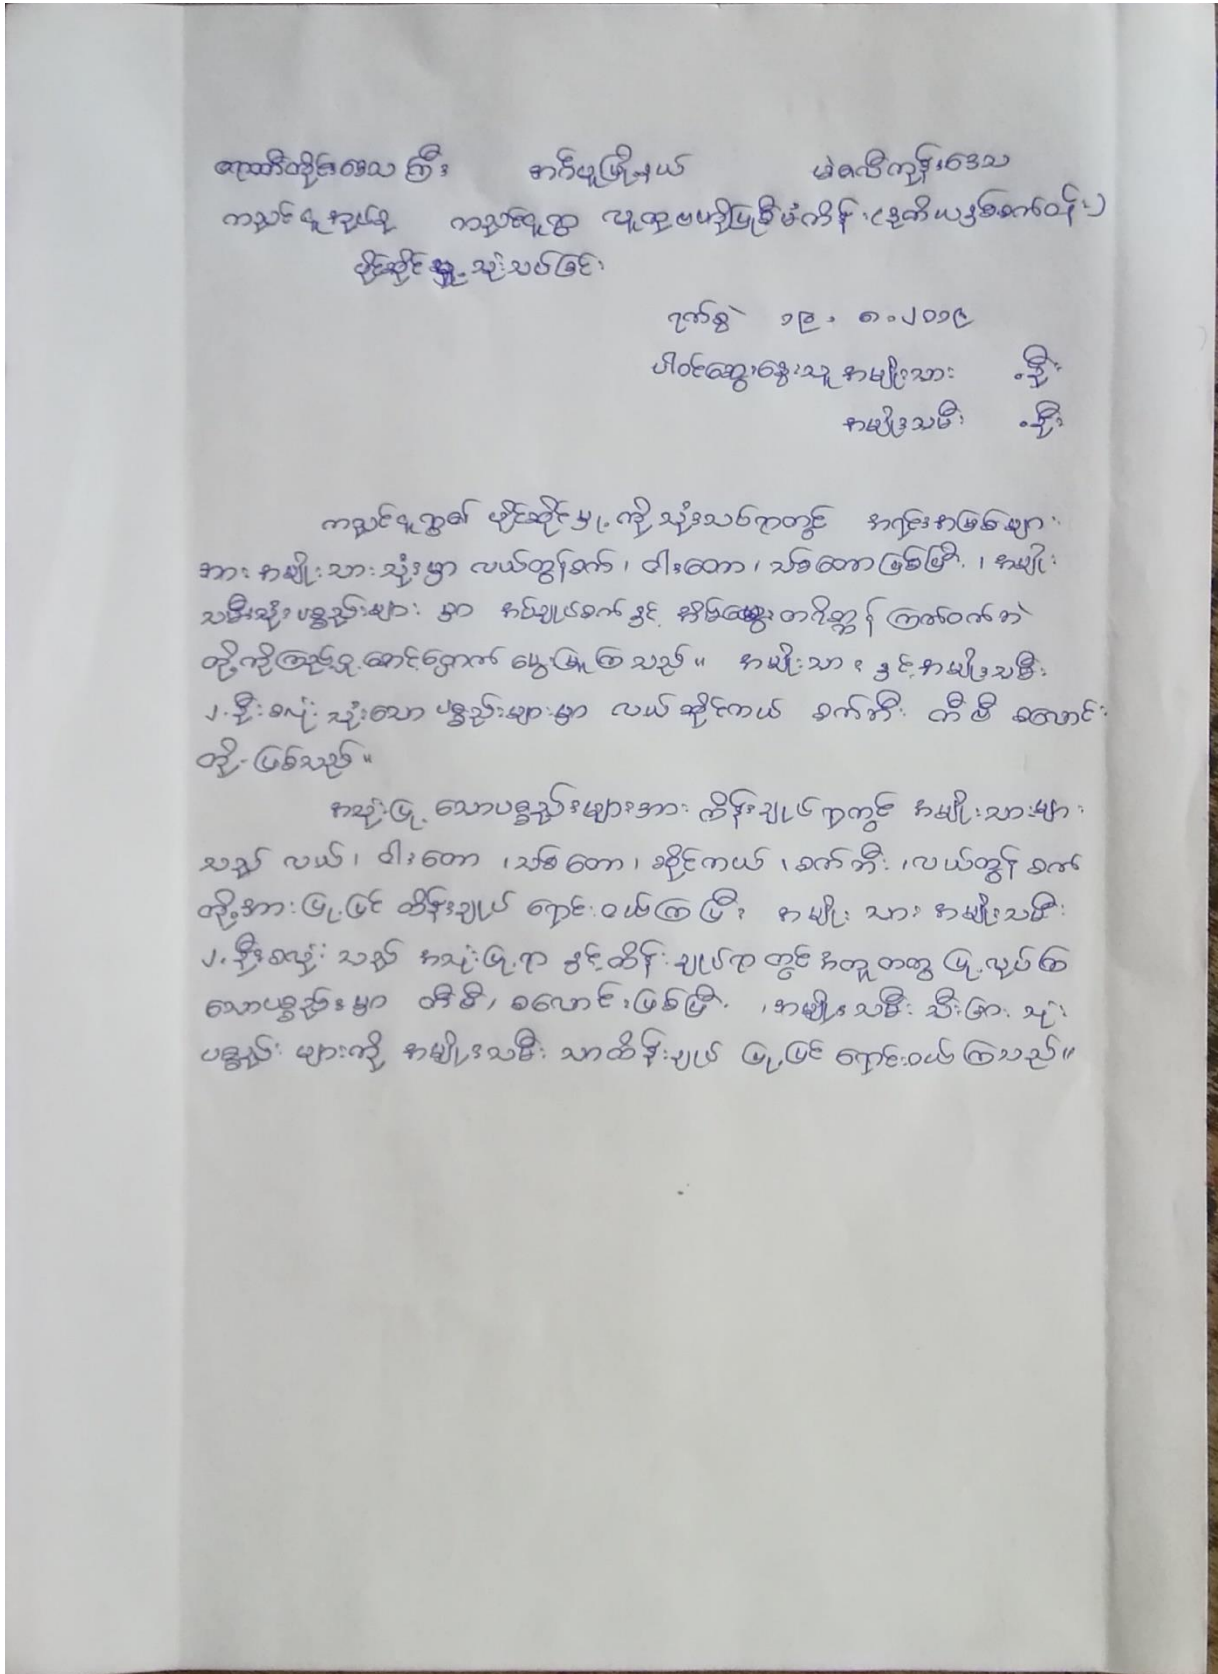 ဧရာဝတီတိုင်းဒေသကြီး အင်္ဂပူမြို့နယ် မဲဇလီကုန်းဒေသ
ကညင်ငူအုပ်စု ကညင်ငူရွာ လူထုဗဟိုပြုစီမံကိန်း(ဒုတိယနှစ်စက်ဝန်း)
ပိုင်ဆိုင်မှု့သုံးသပ်ခြင်း
ရက်စွဲ ၁၉.၈.၂၀၁၉
ပါဝင်ဆွေးနွေးသူ အမျိုးသား ဦး
အမျိုးသမီး ဦး
ကညင်ငူရွာ၏ ပိုင်ဆိုင်မှု့ကို သုံးသပ်ရာတွင် အရင်းအမြစ်များ
အား အမျိုးသားသုံးမှာ လယ်ထွန်စက်၊ ဝါးတော၊ သစ်တောဖြစ်ပြီး၊ အမျိုး
သမီးသုံးပစ္စည်းများ မှာ အပ်ချုပ်စက်နှင့် အိမ်မွေးတိရိစ္ဆာန် ကြက်ဝက်ဘဲ
တို့ကိုကြည့်ရှု့စောင့်ရှောက် မွေးမြူကြသည်။ အမျိုးသား နှင့်အမျိုးသမီး
၂.ဦးစလုံး သုံးသောပစ္စည်းများမှာ လယ် ဆိုင်ကယ် စက်ဘီး တီဗီ စလောင်း
တို့ဖြစ်သည်။
အသုံးပြု့သောပစ္စည်းများအား ထိန်းချုပ်ရာတွင် အမျိုးသားများ
သည် လယ်၊ ဝါးတော ၊သစ်တော၊ ဆိုင်ကယ် ၊စက်ဘီး ၊လယ်ထွန် စက်
တို့အား ပြု့ပြင် ထိန်းချုပ် ရောင်းဝယ်ကြပြီး အမျိုးသား အမျိုးသမီး
၂.ဦးစလုံး သည် အသုံးပြု့ရာ နှင့်ထိန်းချုပ်ရာတွင် အတူတကွ ပြု့လုပ်ကြ
သောပစ္စည်းမှာ တီဗီ၊ စလောင်းဖြစ်ပြီး ၊အမျိုးသမီး သီးခြား သုံး
ပစ္စည်း များကို အမျိုးသမီး သာထိန်းချုပ် ပြု့ပြင် ရောင်းဝယ်ကြသည်။